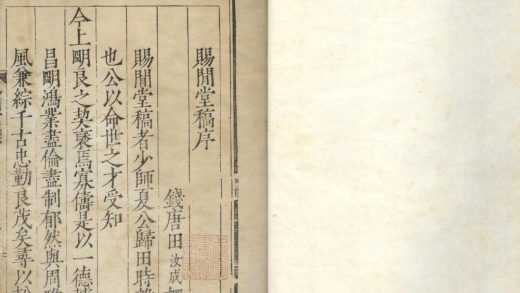 賜閒堂稿序
錢唐田汝成
賜閒堂稿者少師夏公歸田時
也公以命世之才受知
今上明良之契褒焉寡儔是以一德
昌明鴻業盡倫盡制郁然與周
風兼綜千古忠勤良茂矣尋以